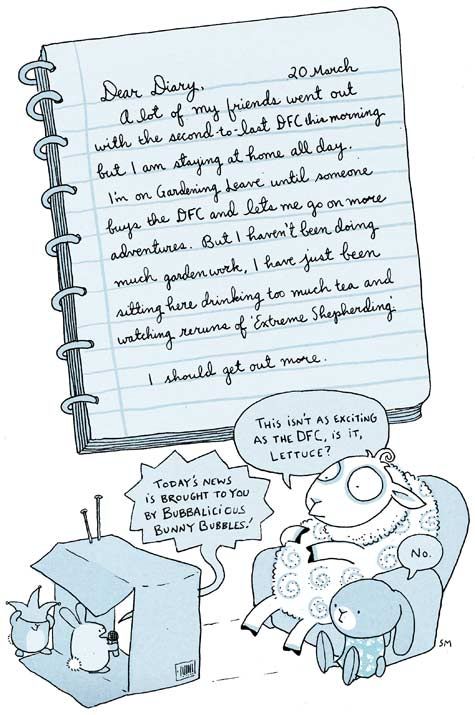 Dear Diary, 20 March
A lot of my friends went out
with the second-to-last DFC this morning
but I am staying at home all day.
I'm on Gardening Leave until someone
buys the DFC and lets me go on more
adventures. But I haven't been doing
much gardenwork, I have just been
sitting here drinking too much tea and
watching reruns of 'Extreme Shepherding'.
I should get out more.
THIS ISN'T AS EXCITING
AS THE DFC, IS IT,
LETTUCE?
TODAY'S NEWS
IS BROUGHT TO YOU
BY BUBBALICIOUS
BUNNY BUBBLES!
NO.
SM